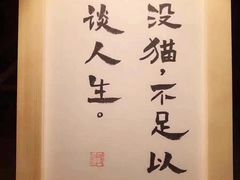 没猫，不足以
谈人生。